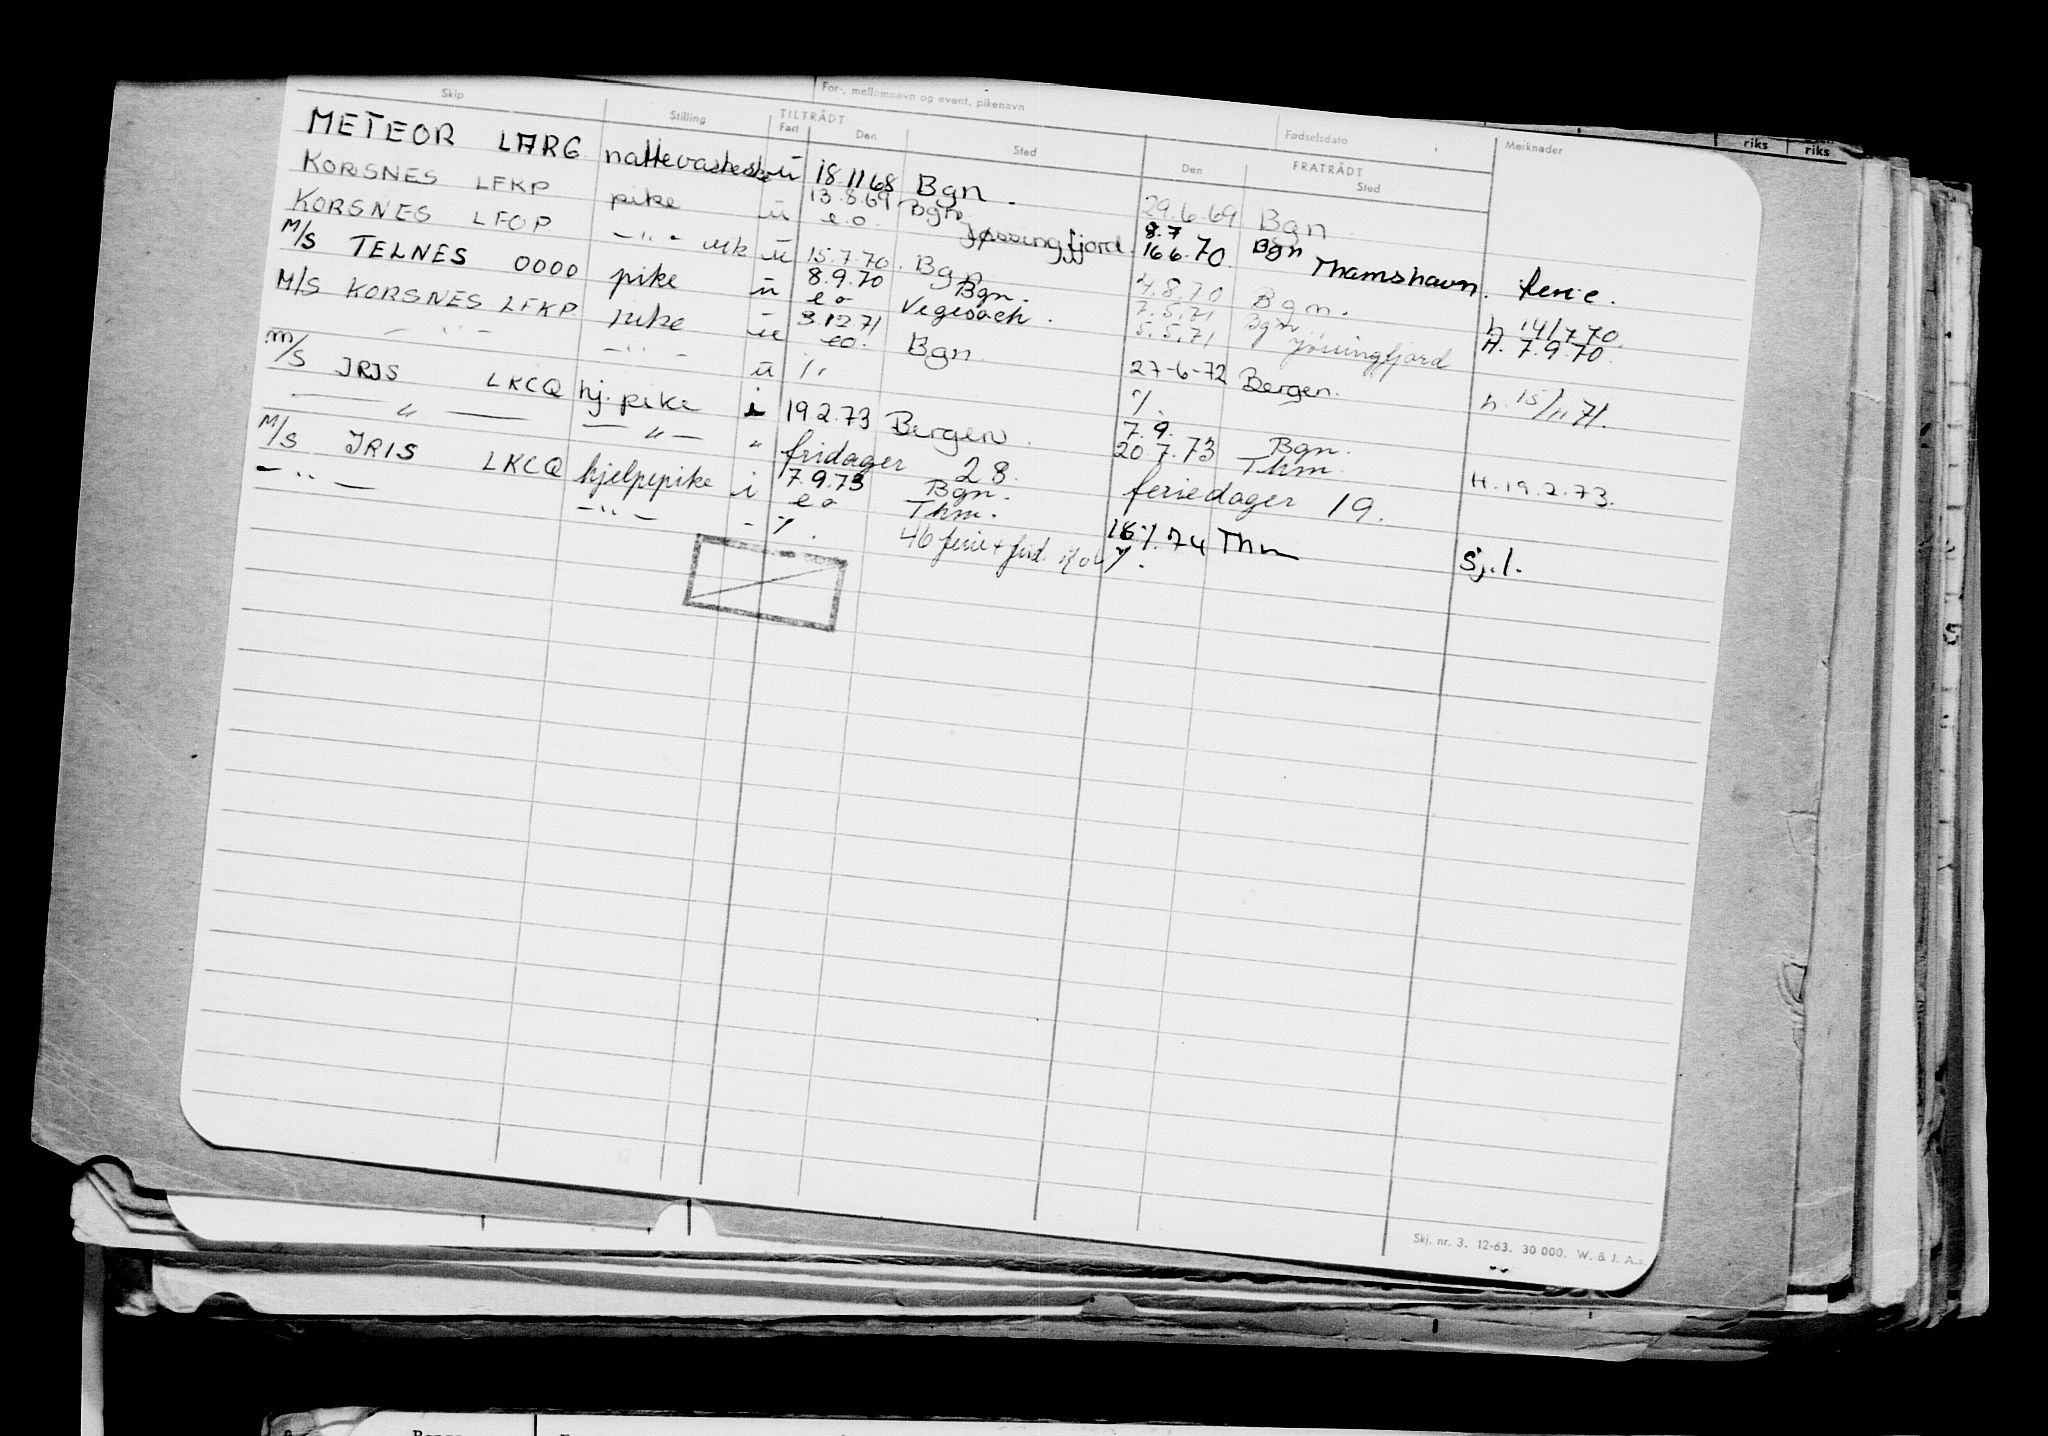 For-, mellomnavn og event. pikenavn
Fødselsdato
Skip Stilling TILTRÅDT Fart Den Sted FRATRÅDT Den Sted Merknader
riks riks
METEOR LARG ü 18.11.68 Bgn. 29.6.69 Bgn
KORSNES LFKP pike ü 13.8.69 e.o. Bgn. Jøssingfjord 8.7 16.6.70 Bgn Thamshavn. ferie.
KORSNES LFOP - " - ü 15.7.70. Bgn 4.8.70 Bgn. h 14/7.70.
M/S TELNES OOOO pike ü 8.9.70 e o Bgn. Vegesack. 7.5.71 5.5.71 Bgn Jøssingfjord H. 7.9.70.
M/S KORSNES LFKP pike ü 3.12.71 eo. Bgn. 27-6-72 Bergen. h. 15/11 71.
- " - - " - ü
M/S IRIS LKCQ hj. pike i 19.2.73 Bergen. 7.9. 20.7.73 Bgn. Thm. H. 19.2.73.
- " - - " - " fridager 28. feriedager 19.
M/S IRIS LKCQ hjelpepike i 7.9.73 e o Bgn. Thm. 74 Thm Sj.l.
- " - - " - - 46 ferie + frid.
Skj. nr. 3. 12-63. 30 000. W. & J. A.s.